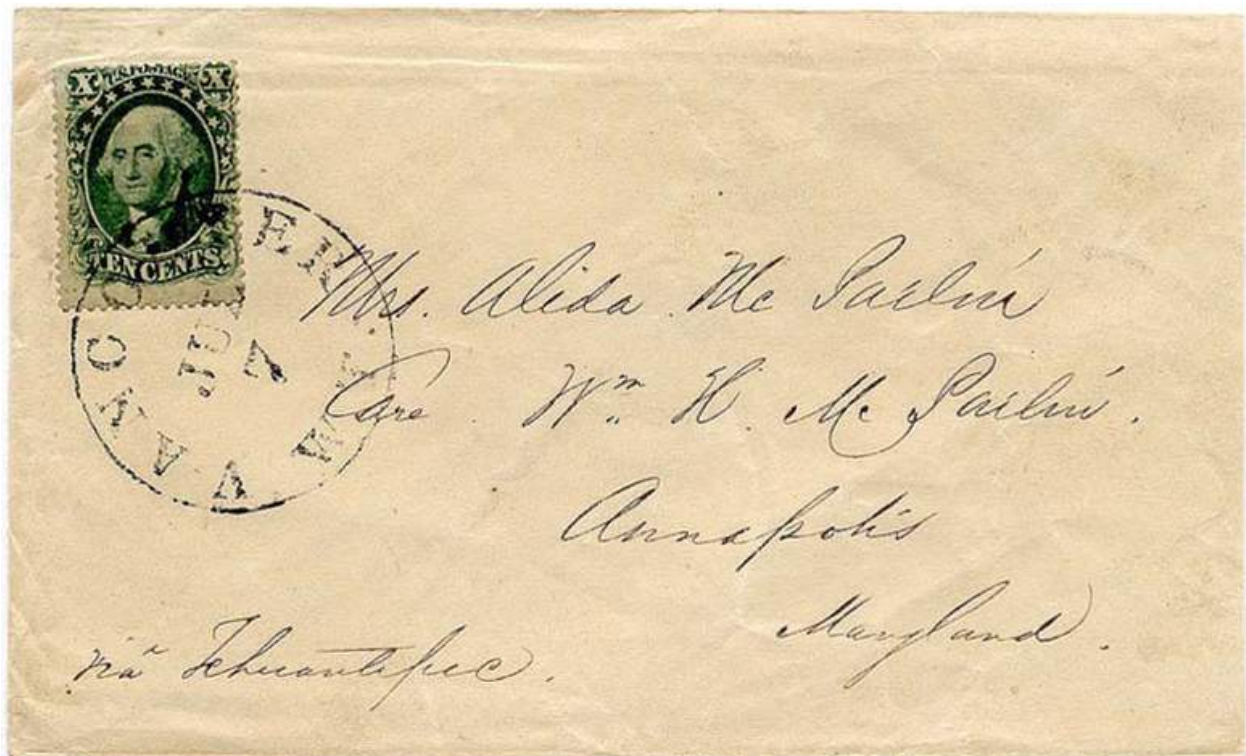 X U.S. POSTAGE X
TEN CENTS.
VANCOUVER W.T.
7
Mrs. Alida Mc Parlin
Care. Wm. H. Mc Parlin.
Annapolis
Maryland.
via Tehuantepec.